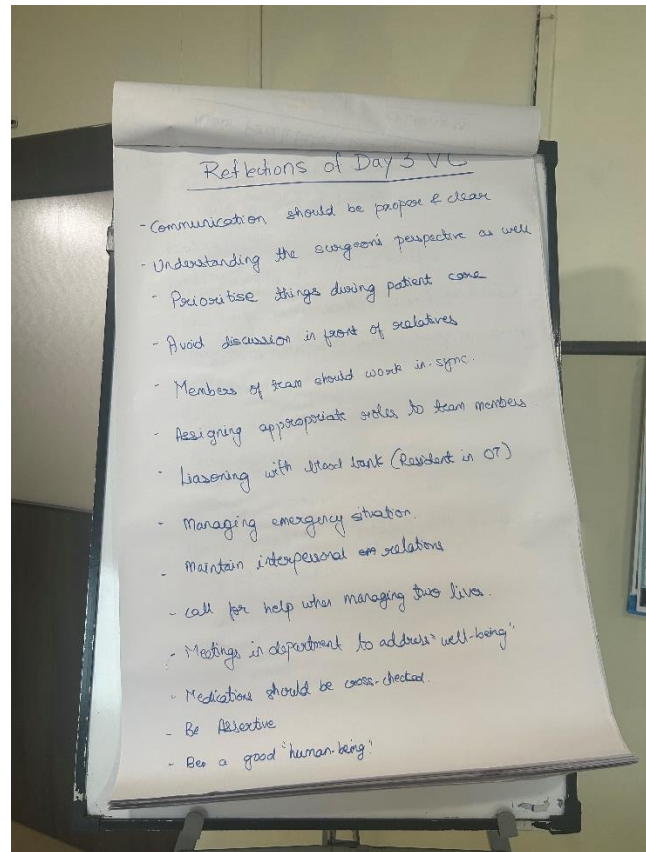 Reflections of Day 3 VC
- Communication should be proper & clear
- Understanding the surgeon's perspective as well
- Prioritise things during patient care
- Avoid discussion in front of relatives
- Members of team should work in-sync.
- Assigning appropriate roles to team members
- Liasoning with blood bank (Resident in OT)
- Managing emergency situation.
- Maintain interpersonal relations
- Call for help when managing two lives.
- Meetings in department to address "well-being"
- Medications should be cross-checked.
- Be Assertive
- Be a good "human-being"